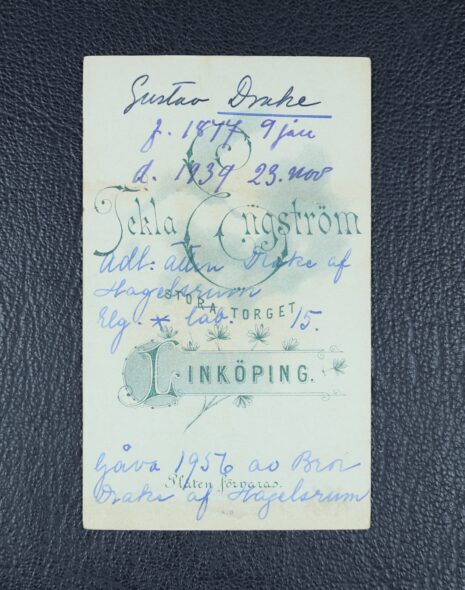 Gustav Drake
f. 1877 9 jan
d. 1939 23. nov
Tekla Engström
Adl. ätten Drake af
Hagelsrum
STORA TORGET 15.
Elg. * lab.
LINKÖPING.
Gåva 1956 av Bror
Platen förvaras.
Drake af Hagelsrum